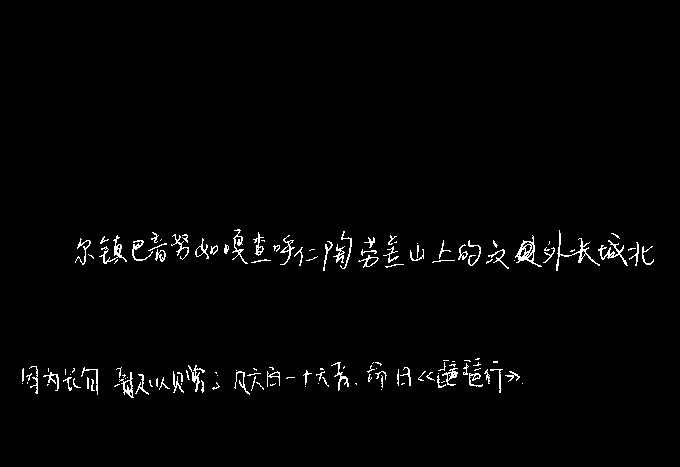 尔镇巴音努如嘎查呼仁陶劳盖山上的汉外长城北
因为长句 歌以赠之 凡六百一十六言，命曰《琵琶行》